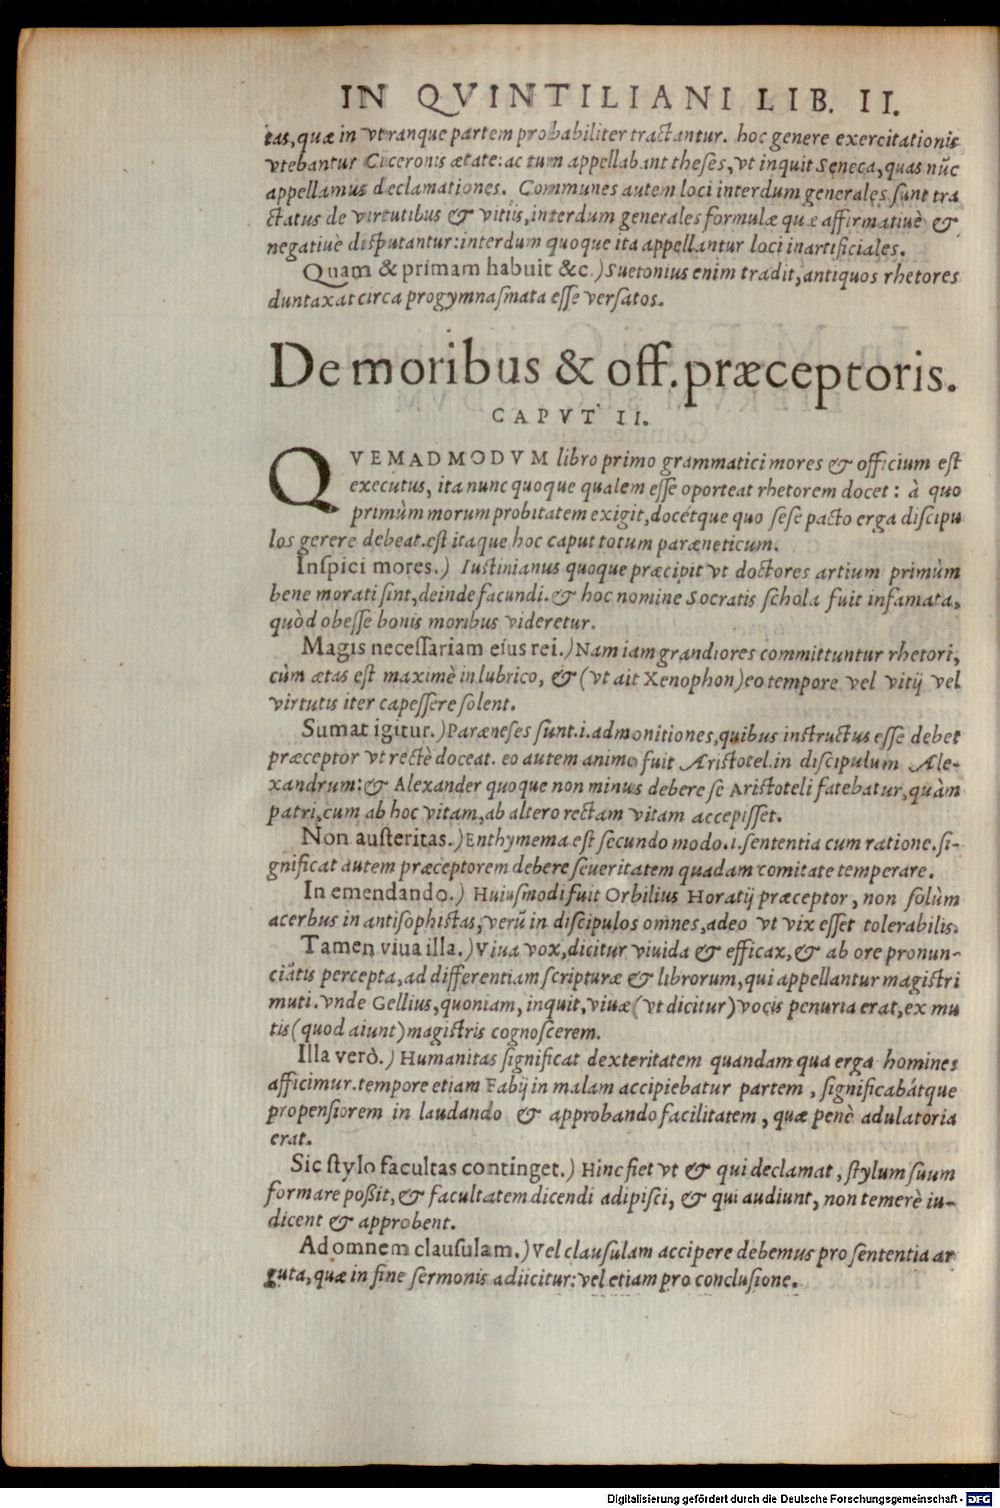 IN QVINTILIANI LIB. II.
tas, quæ in vtranque partem probabiliter tractantur. hoc genere exercitationis
vtebantur Ciceronis ætate: ac tum appellabant theses, vt inquit Seneca, quas nũc
appellamus declamationes. Communes autem loci interdum generales sunt tra
ctatus de virtutibus & vitiis, interdum generales formulæ quæ affirmatiuè &
negatiuè disputantur: interdum quoque ita appellantur loci inartificiales.
Quam & primam habuit &c.) Suetonius enim tradit, antiquos rhetores
duntaxat circa progymnasmata esse versatos.
De moribus & off. præceptoris.
CAPVT II.
QVEMADMODVM libro primo grammatici mores & officium est
executus, ita nunc quoque qualem esse oporteat rhetorem docet: à quo
primùm morum probitatem exigit, docétque quo sese pacto erga discipu
los gerere debeat. est itaque hoc caput totum paræneticum.
Inspici mores.) Iustinianus quoque præcipit vt doctores artium primùm
bene morati sint, deinde facundi. & hoc nomine Socratis schola fuit infamata,
quòd obesse bonis moribus videretur.
Magis necessariam eius rei.) Nam iam grandiores committuntur rhetori,
cùm ætas est maximè in lubrico, & (vt ait Xenophon) eo tempore vel vitij vel
virtutis iter capessere solent.
Sumat igitur.) Paræneses sunt .i. admonitiones, quibus instructus esse debet
præceptor vt rectè doceat. eo autem animo fuit Aristotel. in discipulum Ale-
xandrum: & Alexander quoque non minus debere se Aristoteli fatebatur, quàm
patri, cum ab hoc vitam, ab altero rectam vitam accepisset.
Non austeritas.) Enthymema est secundo modo .i. sententia cum ratione. si-
gnificat autem præceptorem debere seueritatem quadam comitate temperare.
In emendando.) Huiusmodi fuit Orbilius Horatij præceptor, non solùm
acerbus in antisophistas, verũ in discipulos omnes, adeo vt vix esset tolerabilis.
Tamen viua illa.) Viua vox, dicitur viuida & efficax, & ab ore pronun-
ciãtis percepta, ad differentiam scripturæ & librorum, qui appellantur magistri
muti. vnde Gellius, quoniam, inquit, viuæ (vt dicitur) vocis penuria erat, ex mu
tis (quod aiunt) magistris cognoscerem.
Illa verò.) Humanitas significat dexteritatem quandam qua erga homines
afficimur. tempore etiam Fabij in malam accipiebatur partem, significabátque
propensiorem in laudando & approbando facilitatem, quæ penè adulatoria
erat.
Sic stylo facultas continget.) Hinc fiet vt & qui declamat, stylum suum
formare poßit, & facultatem dicendi adipisci, & qui audiunt, non temerè iu-
dicent & approbent.
Ad omnem clausulam.) Vel clausulam accipere debemus pro sententia ar
guta, quæ in fine sermonis adiicitur: vel etiam pro conclusione.
Digitalisierung gefördert durch die Deutsche Forschungsgemeinschaft - DFG